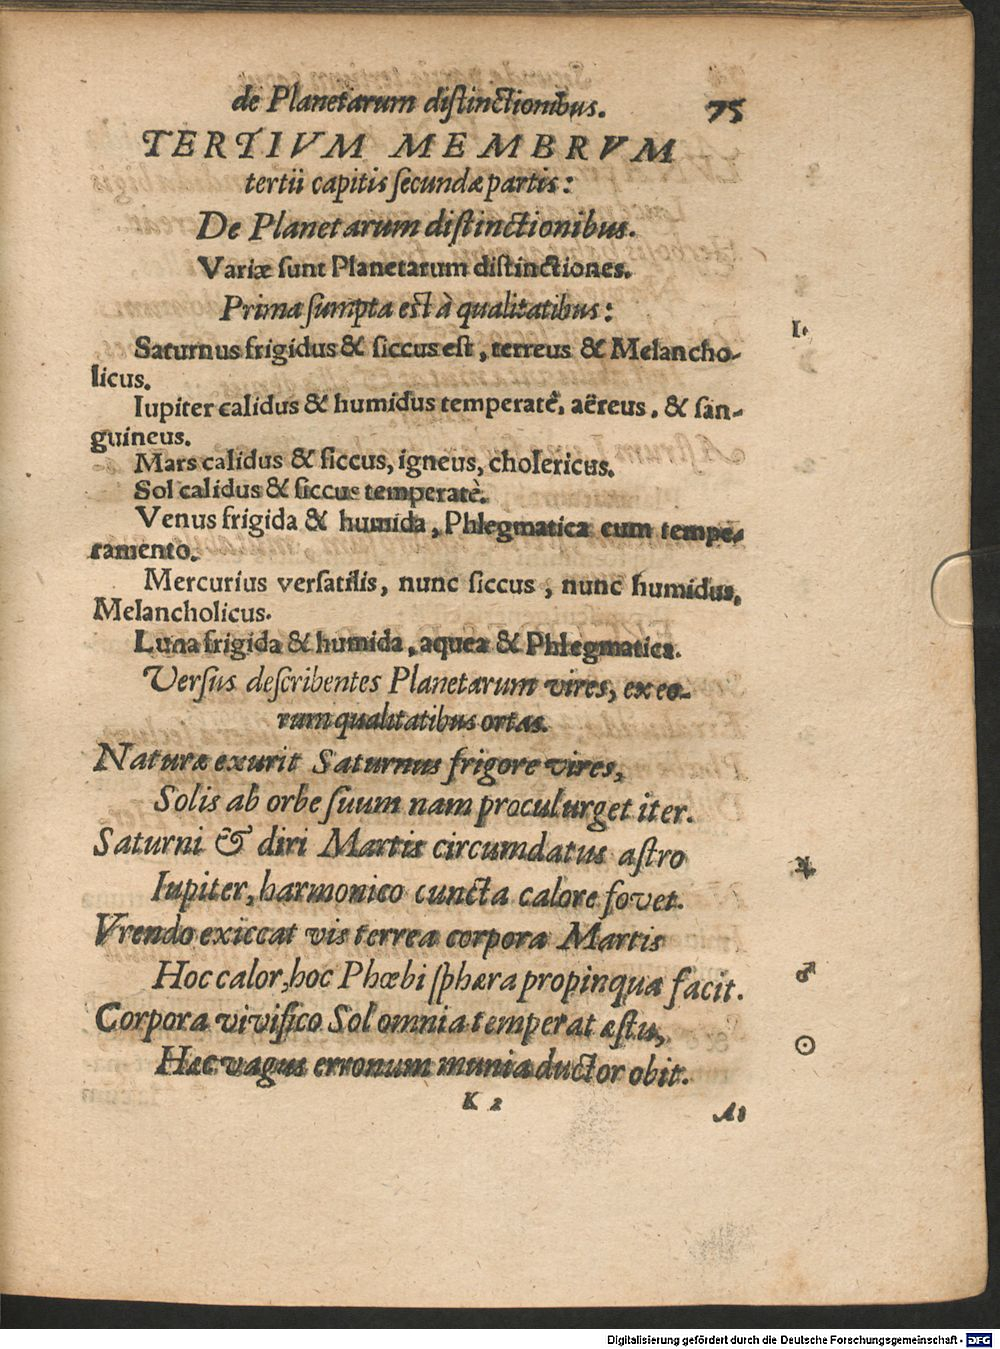 de Planetarum distinctionibus. 75
TERTIVM MEMBRVM
tertii capitis secundæ partis:
De Planetarum distinctionibus.
Variæ sunt Planetarum distinctiones.
Prima sumpta est à qualitatibus: I.
Saturnus frigidus & siccus est, terreus & Melancho-
licus.
Iupiter calidus & humidus temperatè, aëreus, & san-
guineus.
Mars calidus & siccus, igneus, cholericus.
Sol calidus & siccus temperatè.
Venus frigida & humida, Phlegmatica cum tempe-
ramento.
Mercurius versatilis, nunc siccus, nunc humidus,
Melancholicus.
Luna frigida & humida, aquea & Phlegmatica.
Versus describentes Planetarum vires, ex eo-
rum qualitatibus ortas.
Naturæ exurit Saturnus frigore vires,
Solis ab orbe suum nam procul urget iter.
Saturni & diri Martis circumdatus astro ♃
Iupiter, harmonico cuncta calore fovet.
Vrendo exiccat vis terrea corpora Martis
Hoc calor, hoc Phœbi sphæra propinqua facit. ♂
Corpora vivifico Sol omnia temperat æstu,
Hæc vagus erronum munia ductor obit. ☉
K 2
Digitalisierung gefördert durch die Deutsche Forschungsgemeinschaft - DFG